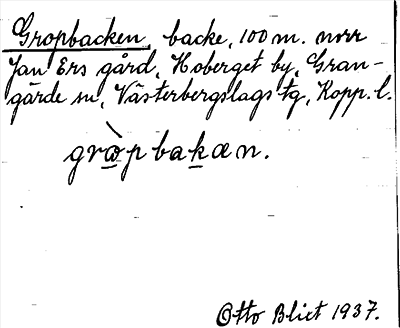 Gropbacken, backe, 100 m. norr
Jan Ers gård, Hoberget by, Gran-
gärde sn, Västerbergslags tg, Kopp. l.
grɷ̀pbakæn.
Otto Blixt 1937.